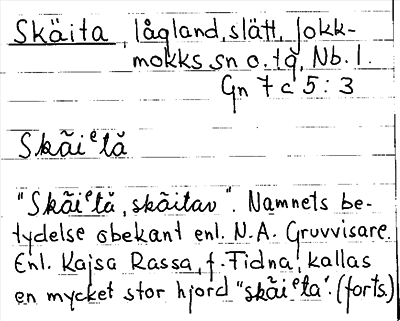 Skäita, lågland, slätt, Jokk-
mokks sn o. tg, Nb. l.
Gn 7 c 5 : 3
Skãiᵉtǎ
"Skãiᵉtǎ, skãitav". Namnets be-
tydelse obekant enl. N.A. Gruvvisare.
Enl. Kajsa Rassa, f. Fidna, kallas
en mycket stor hjord "skãiᵉta". (forts.)